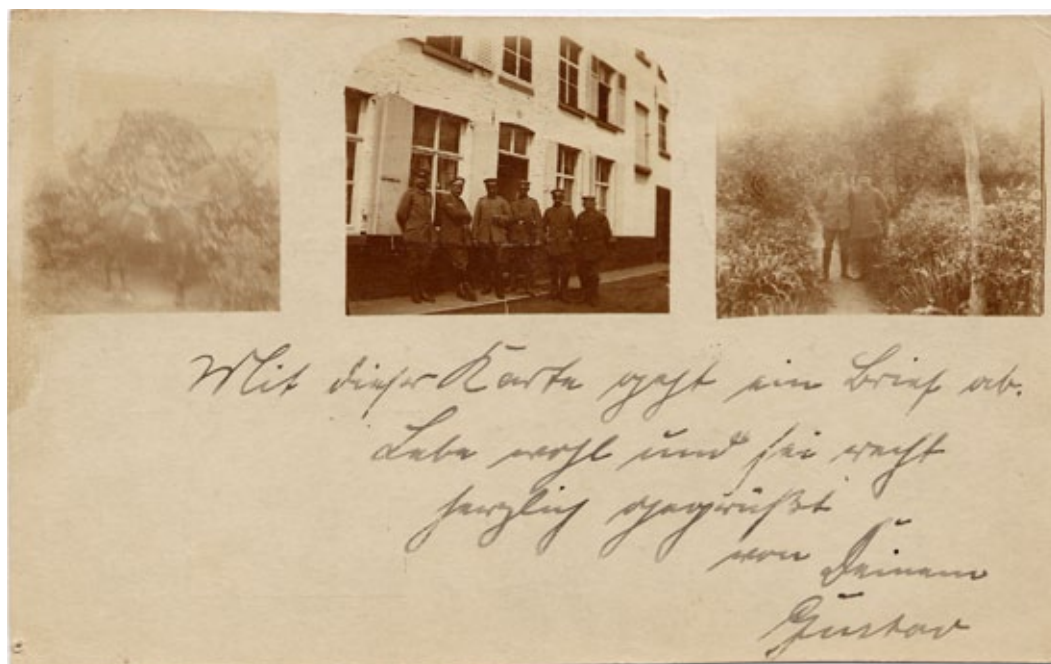 Mit dieser Karte geht ein Brief ab.
Lebe wohl und sei recht
herzlich gegrüßt
von Deinem
Gustav